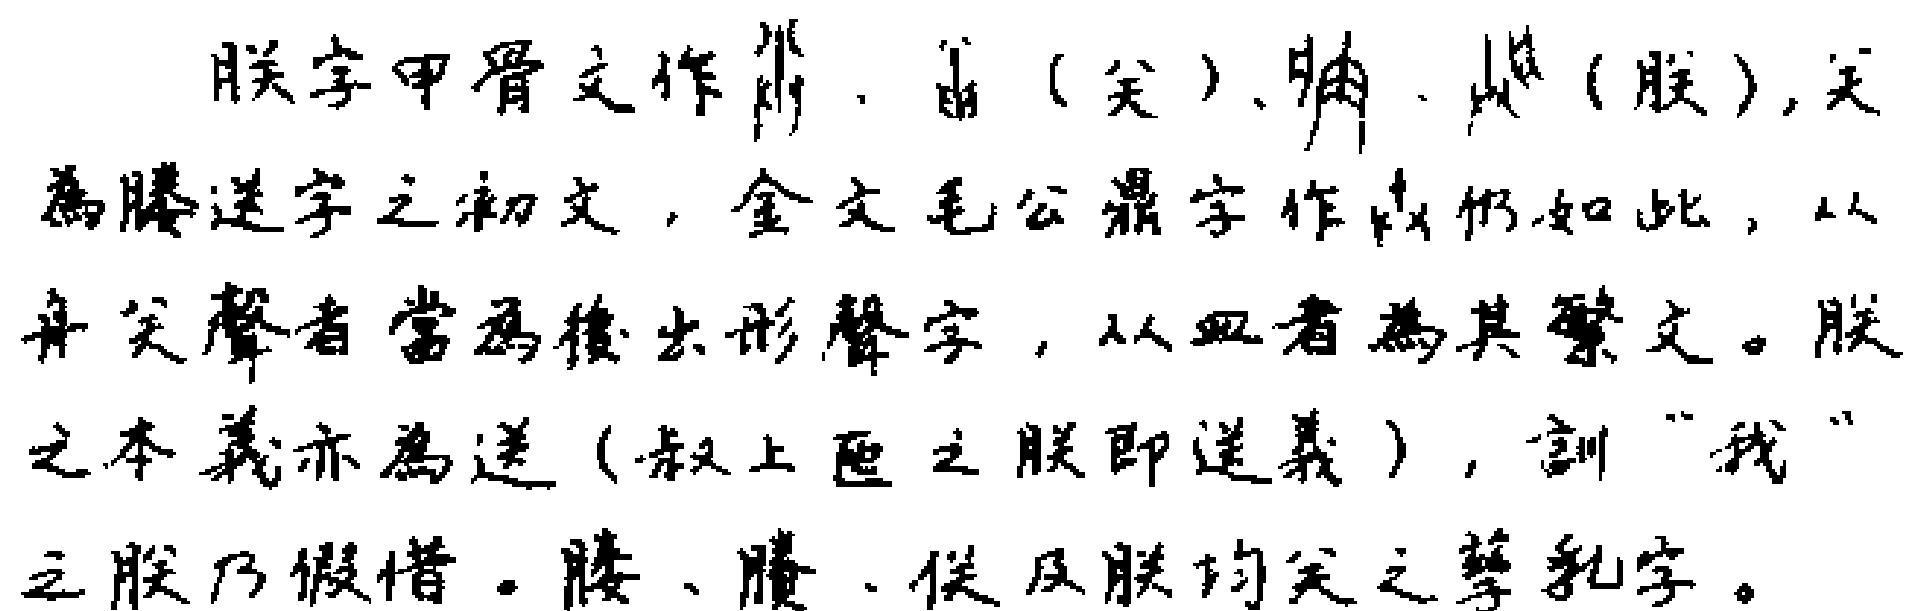 朕字甲骨文作、（关）、、（朕），关
為媵送字之初文，金文毛公鼎字作仍如此，从
舟关聲者當為後出形聲字，从皿者為其繁文。朕
之本義亦為送（叔上匜之朕即送義），訓“我”
之朕乃假借。媵、賸、佚及朕均关之孳乳字。